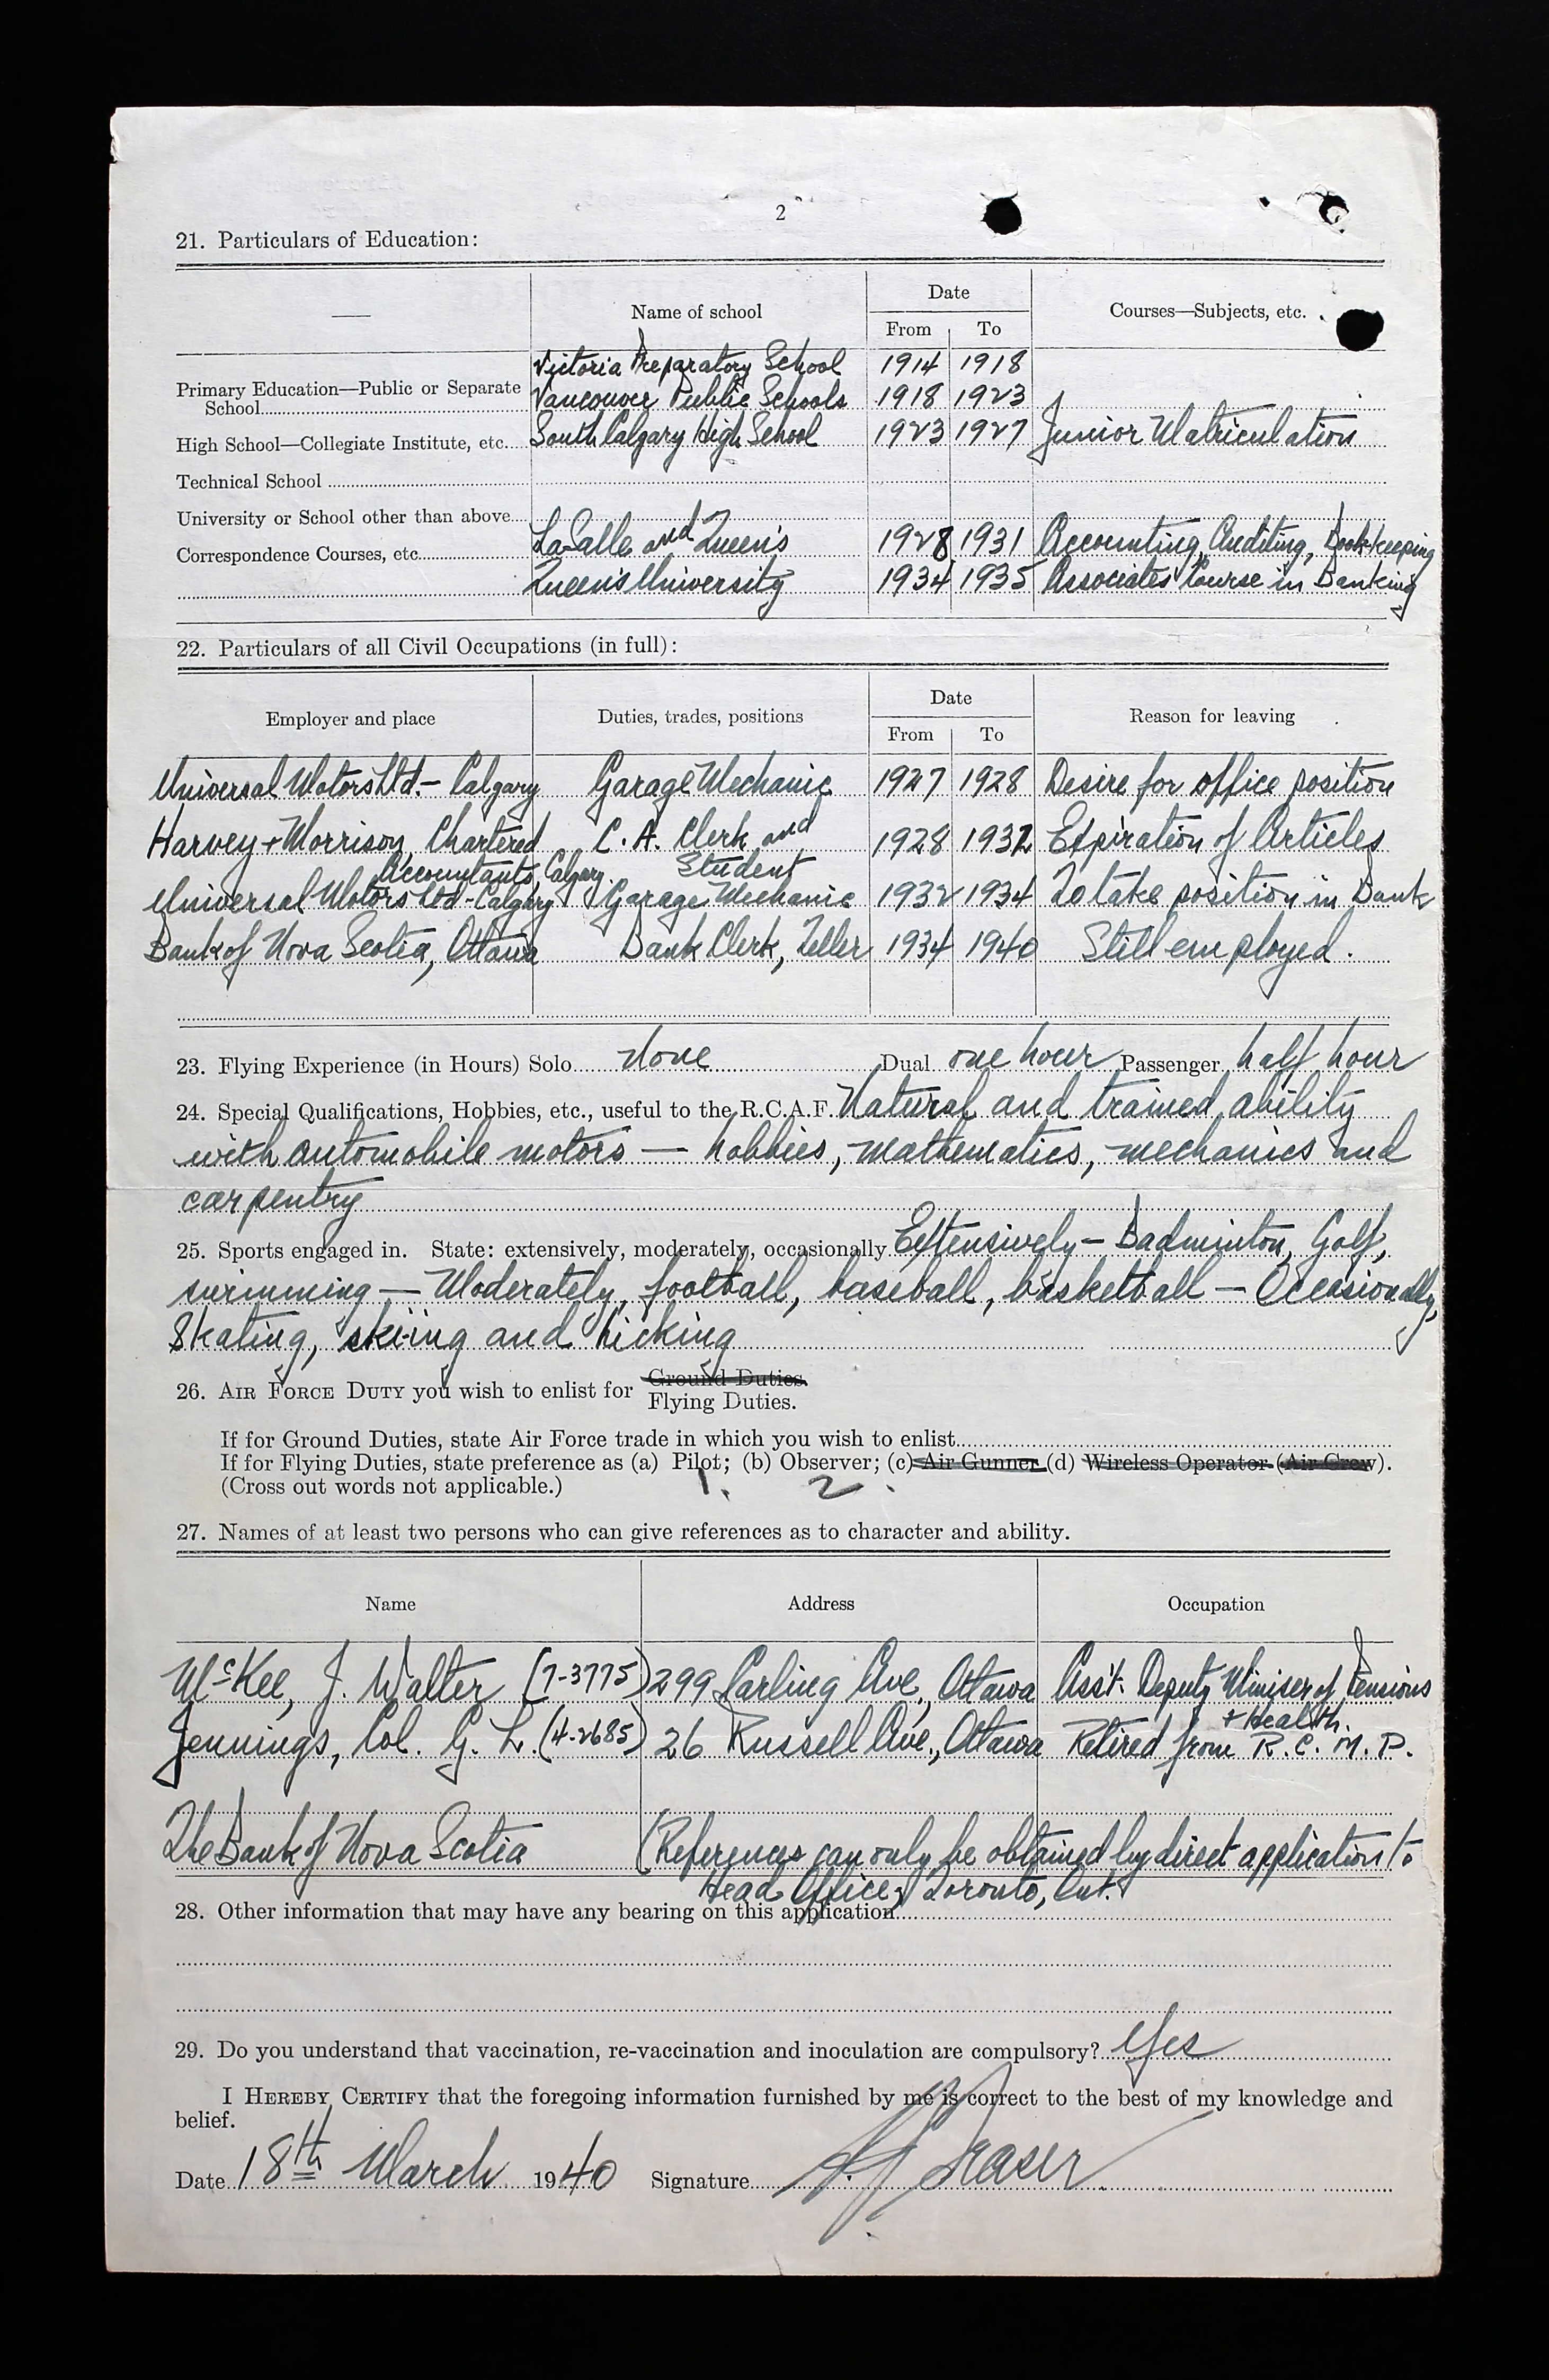 2
21. Particulars of Education:
Name of school
Date
From To
Courses—Subjects, etc.
Victoria Preparatory School 1914 1918
Primary Education—Public or Separate School Vancouver Public Schools 1918 1923
High School—Collegiate Institute, etc. South Calgary High School 1923 1927 Junior Matriculation
Technical School
University or School other than above
Correspondence Courses, etc. LaSalle and Queen's 1928 1931 Accounting, Auditing, Book-keeping
Queen's University 1934 1935 Associates' Course in Banking
22. Particulars of all Civil Occupations (in full):
Employer and place
Duties, trades, positions
Date
From To
Reason for leaving
Universal Motors Ltd. - Calgary Garage Mechanic 1927 1928 Desire for office position
Harvey + Morrison, Chartered C. A. Clerk and 1928 1932 Expiration of Articles
Accountants, Calgary. Student
Universal Motors Ltd - Calgary Garage Mechanic 1932 1934 To take position in Bank
Bank of Nova Scotia, Ottawa Bank Clerk, Teller 1934 1940 Still employed.
23. Flying Experience (in Hours) Solo None Dual one hour Passenger half hour
24. Special Qualifications, Hobbies, etc., useful to the R.C.A.F. Natural and trained ability
with automobile motors — hobbies, mathematics, mechanics and
carpentry
25. Sports engaged in. State: extensively, moderately, occasionally Extensively - Badminton, Golf,
swimming — Moderately, football, baseball, basketball — Occasionally,
skating, skiing and hicking
26. AIR FORCE DUTY you wish to enlist for Ground Duties.
Flying Duties.
If for Ground Duties, state Air Force trade in which you wish to enlist
If for Flying Duties, state preference as (a) Pilot; (b) Observer; (c) Air Gunner (d) Wireless Operator (Air Crew).
(Cross out words not applicable.) 1. 2.
27. Names of at least two persons who can give references as to character and ability.
Name Address Occupation
McKee, J. Walter (7-3775) 299 Carling Ave., Ottawa Ass't. Deputy Miniser of Pensions
+ Health.
Jennings, Col. G. L. (4-2685) 26 Russell Ave., Ottawa Retired from R. C. M. P.
The Bank of Nova Scotia (References can only be obtained by direct application to
Head Office, Toronto, Ont.
28. Other information that may have any bearing on this application
29. Do you understand that vaccination, re-vaccination and inoculation are compulsory? Yes
I HEREBY CERTIFY that the foregoing information furnished by me is correct to the best of my knowledge and
belief.
Date 18th March 1940 Signature Fraser